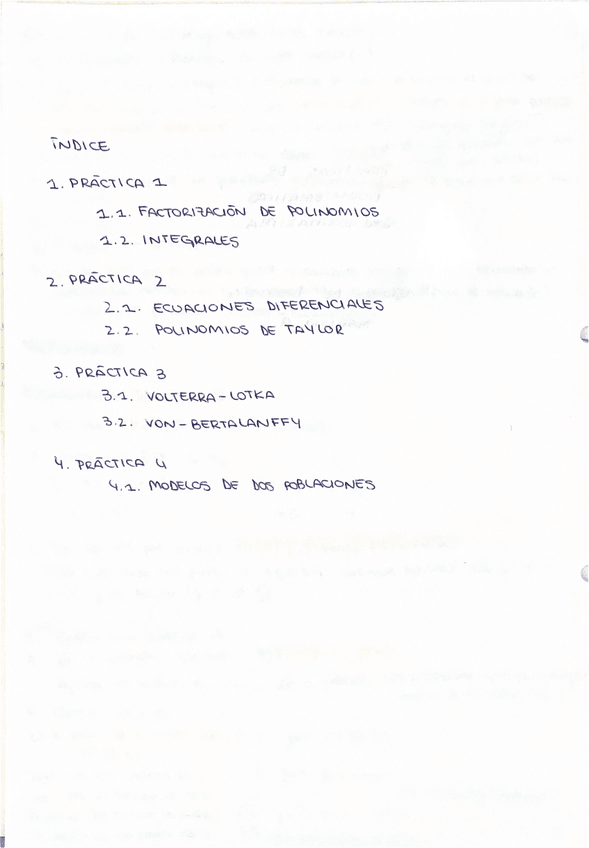 ÍNDICE
1. PRÁCTICA 1
1.1. FACTORIZACIÓN DE POLINOMIOS
1.2. INTEGRALES
2. PRÁCTICA 2
2.1. ECUACIONES DIFERENCIALES
2.2. POLINOMIOS DE TAYLOR
3. PRÁCTICA 3
3.1. VOLTERRA-LOTKA
3.2. VON-BERTALANFFY
4. PRÁCTICA 4
4.1. MODELOS DE DOS POBLACIONES